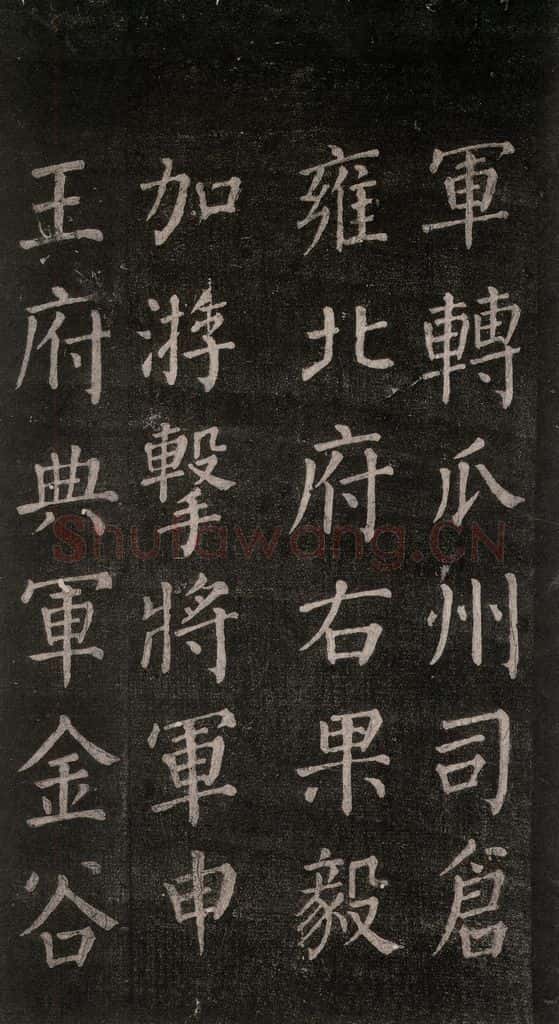 軍轉瓜州司倉
雍北府右果毅
加游擊將軍申
王府典軍金谷
Shufawang.CN